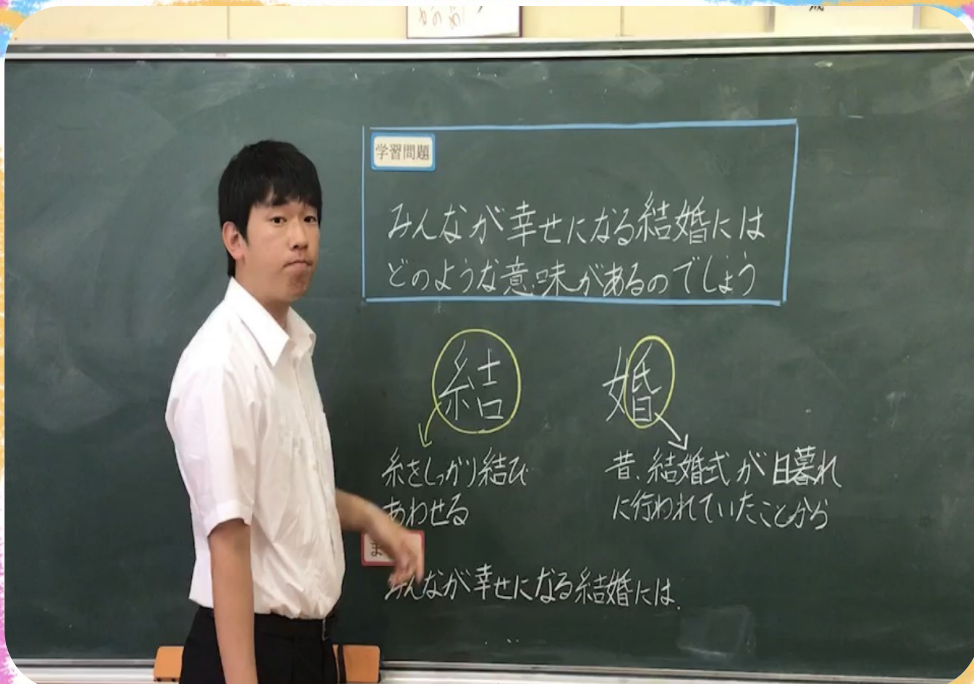 学習問題
みんなが幸せになる結婚には
どのような意味があるのでしょう
結
婚
糸をしっかり結び
あわせる
昔、結婚式が日暮れ
に行われていたことから
ま
みんなが幸せになる結婚には、